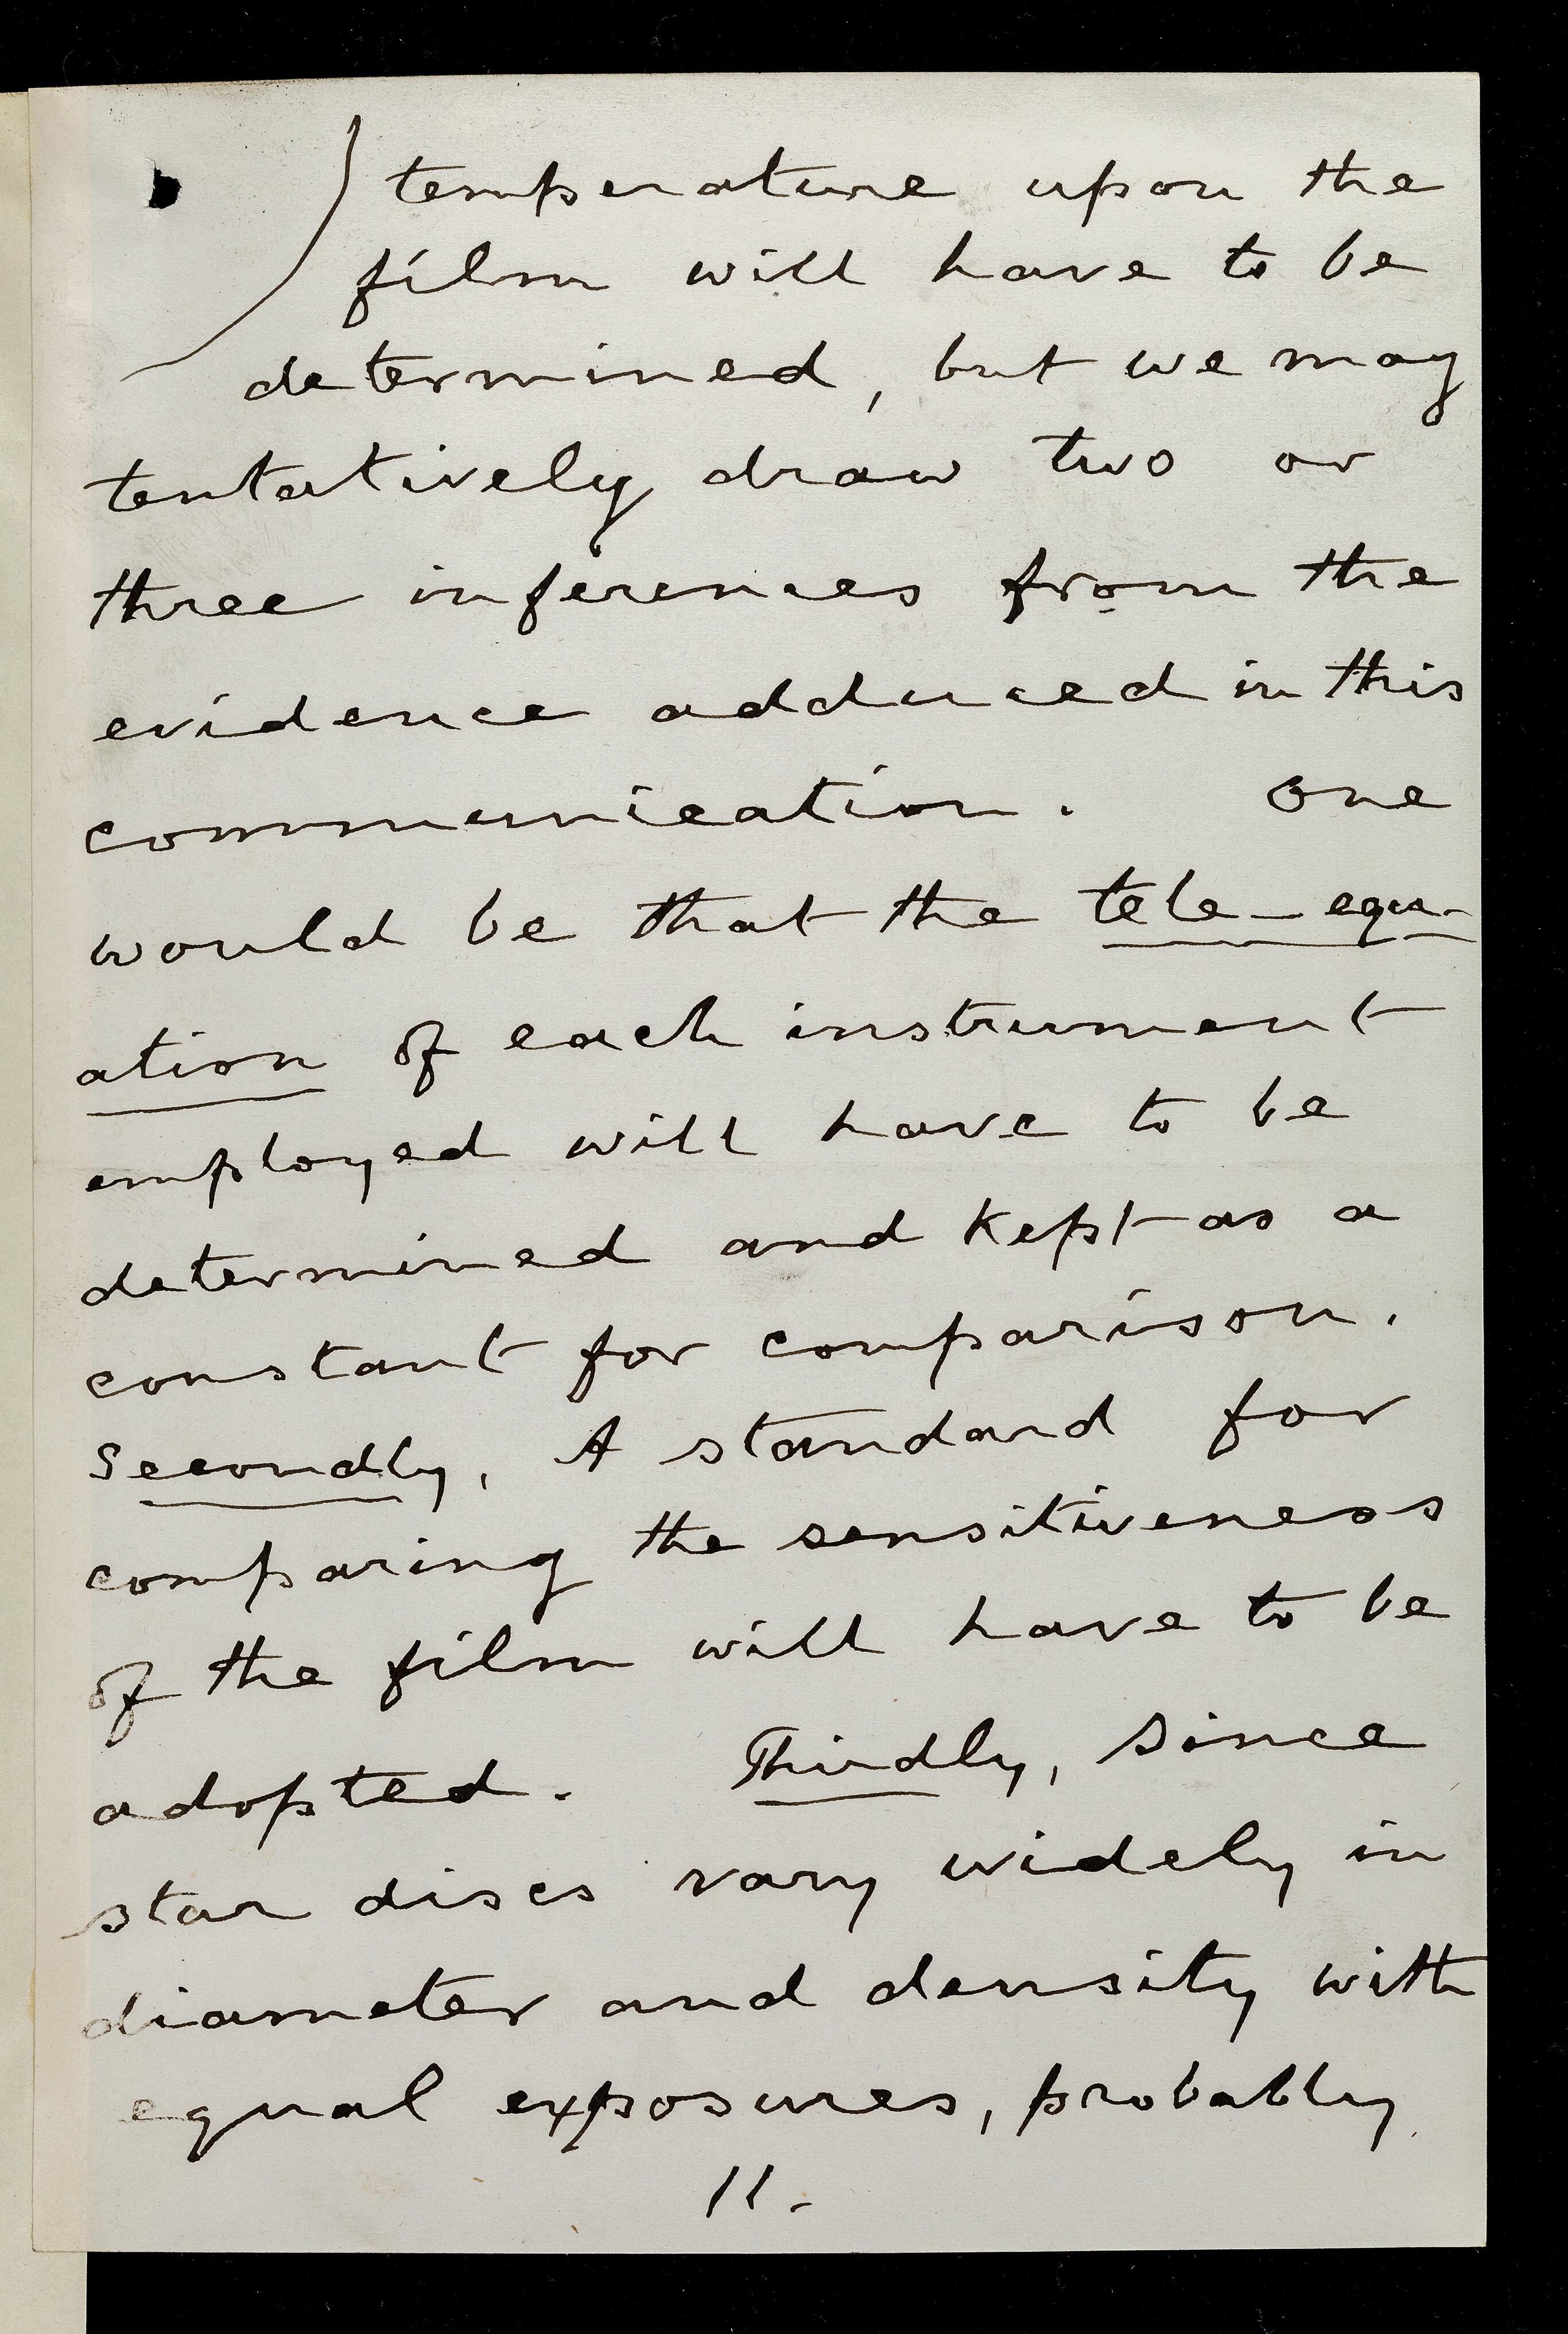 temperature upon the
film will have to be
determined, but we may
tentatively draw two or
three inferences from the
evidence adduced in this
communication. One
would be that the tele-equ-
ation of each instrument
employed will have to be
determined and kept as a
constant for comparison.
Secondly, A standard for
comparing the sensitiveness
of the film will have to be
adopted. Thirdly, since
star discs vary widely in
diameter and density with
equal exposures, probably
11.